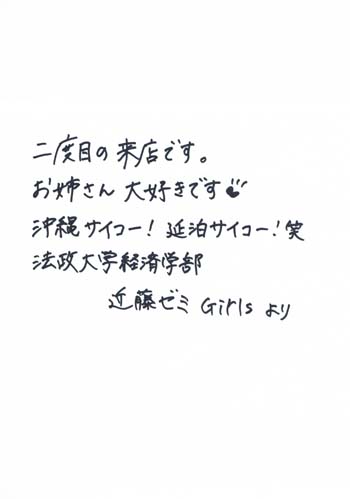 二度目の来店です。
お姉さん 大好きです
沖縄サイコー! 延泊サイコー!笑
法政大学経済学部
近藤ゼミ Girls より